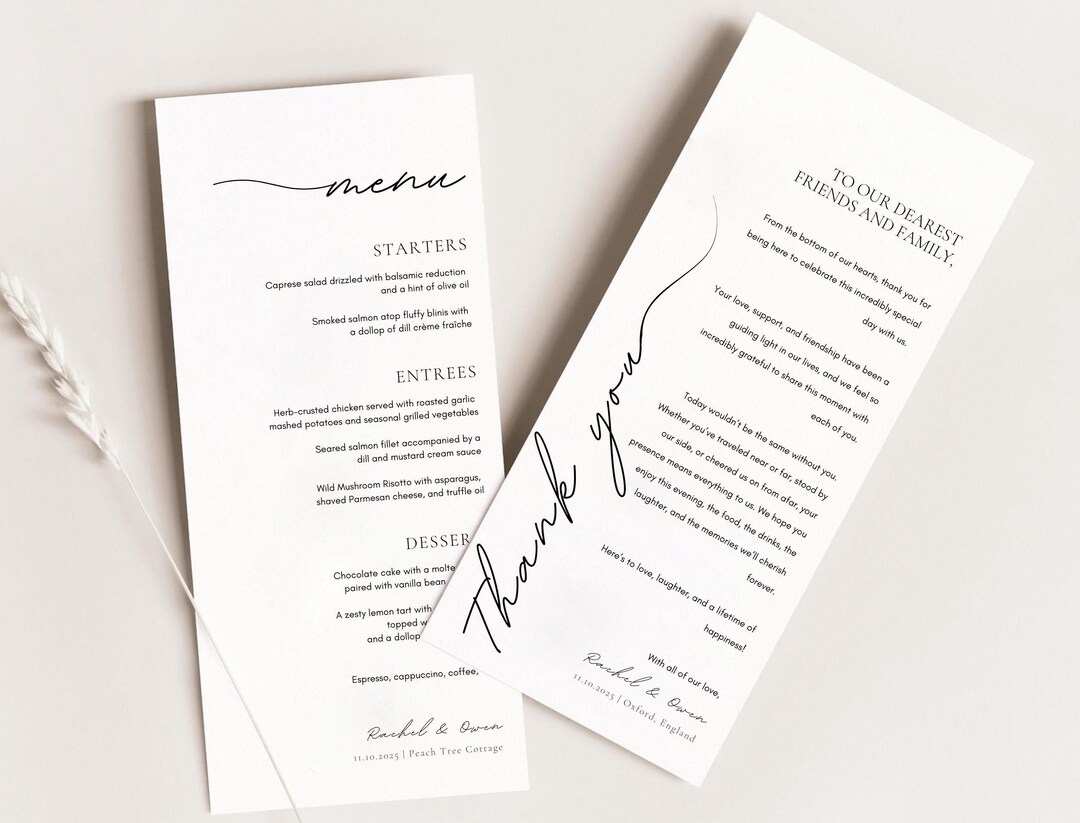 menu
STARTERS
Caprese salad drizzled with balsamic reduction
and a hint of olive oil
Smoked salmon atop fluffy blinis with
a dollop of dill crème fraîche
ENTREES
Herb-crusted chicken served with roasted garlic
mashed potatoes and seasonal grilled vegetables
Seared salmon fillet accompanied by a
dill and mustard cream sauce
Wild Mushroom Risotto with asparagus,
shaved Parmesan cheese, and truffle oil
DESSER
Chocolate cake with a molte
paired with vanilla bean
A zesty lemon tart with
topped w
and a dollop
Espresso, cappuccino, coffee,
Rachel & Owen
11.10.2025 | Peach Tree Cottage
Thank you
TO OUR DEAREST
FRIENDS AND FAMILY,
From the bottom of our hearts, thank you for
being here to celebrate this incredibly special
day with us.
Your love, support, and friendship have been a
guiding light in our lives, and we feel so
incredibly grateful to share this moment with
each of you.
Today wouldn't be the same without you.
Whether you've traveled near or far, stood by
our side, or cheered us on from afar, your
presence means everything to us. We hope you
enjoy this evening, the food, the drinks, the
laughter, and the memories we'll cherish
forever.
Here's to love, laughter, and a lifetime of
happiness!
With all of our love,
Rachel & Owen
11.10.2025 | Oxford, England